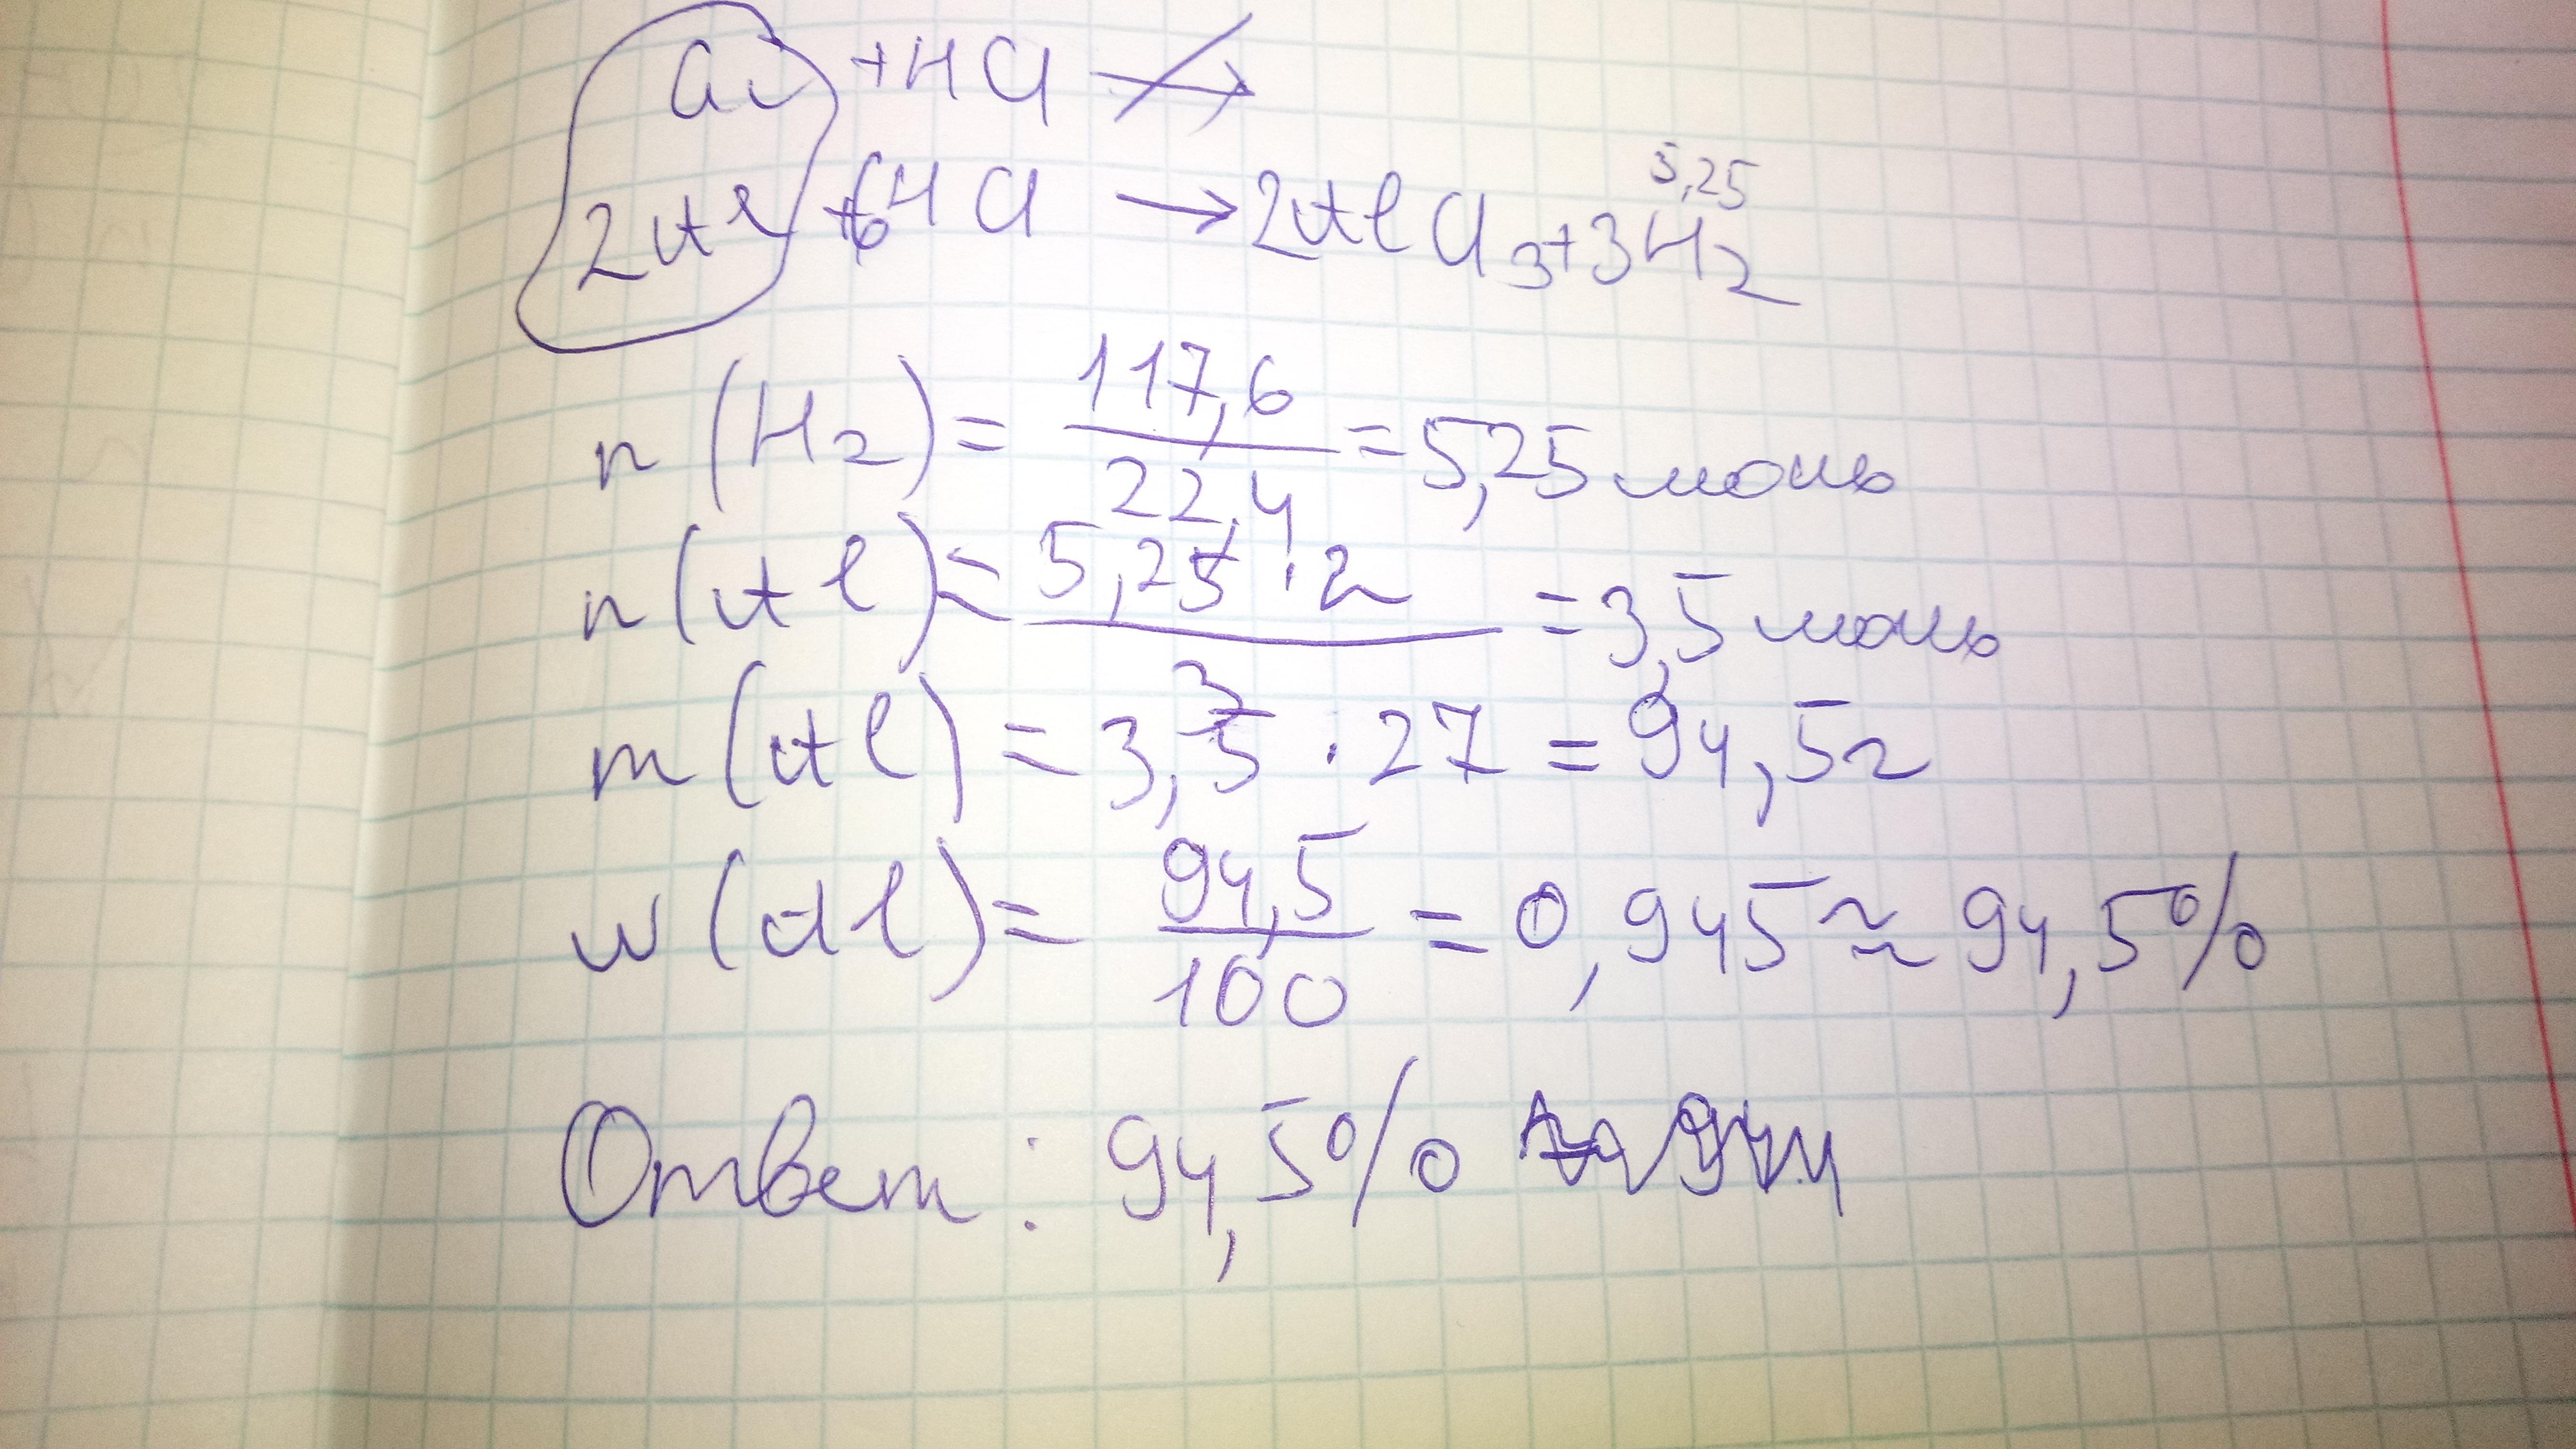 Cu + HCl ↛
2Al + 6HCl → 2AlCl₃ + 3H₂
5,25
n(H₂) = 117,6 / 22,4 = 5,25 моль
n(Al) = 5,25 · 2 / 3 = 3,5 моль
m(Al) = 3,5 · 27 = 94,5 г
w(Al) = 94,5 / 100 = 0,945 ≈ 94,5%
Ответ: 94,5%